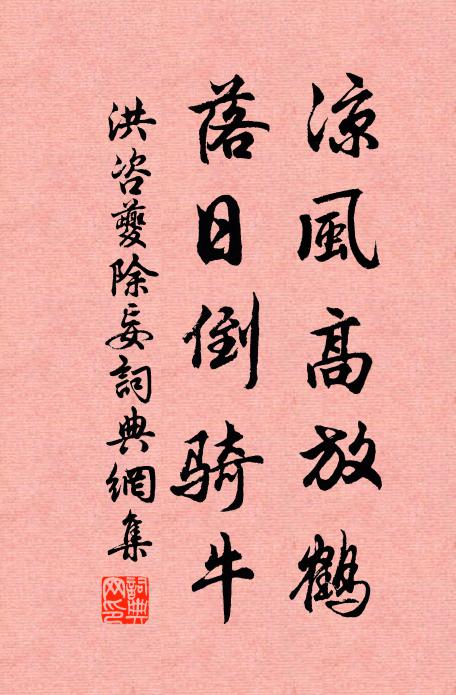 涼風高放鶴
落日倒騎牛
洪咨夔除妄詞典網集
詞典網印